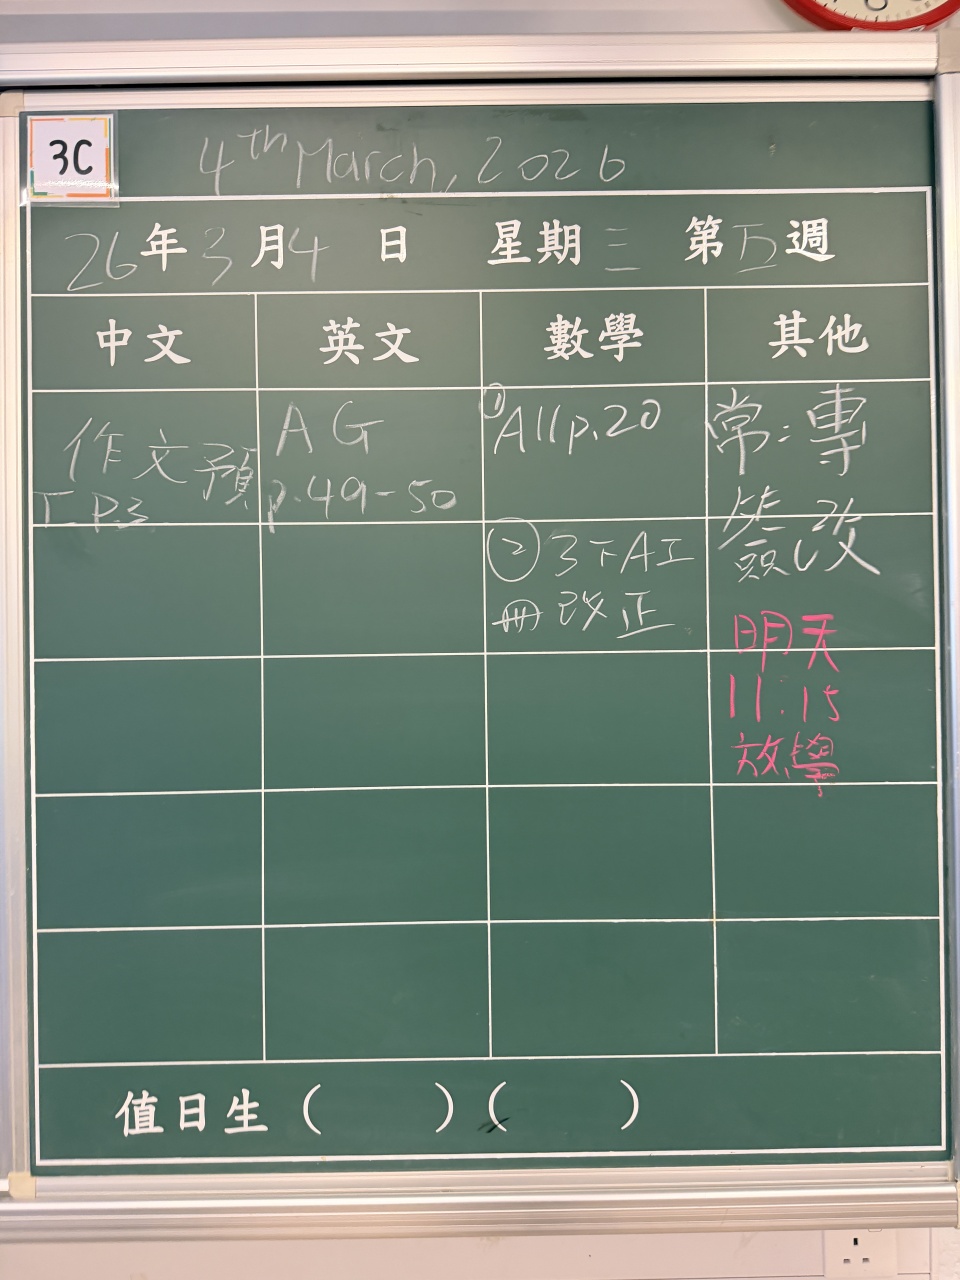 3C
4th March, 2026
26年3月4日 星期三 第五週
中文 英文 數學 其他
作文預
T P.3
AG
p.49-50
①A11p.20
②3下A工
冊改正
常:專
簽改
明天
11:15
放學
值日生( )( )